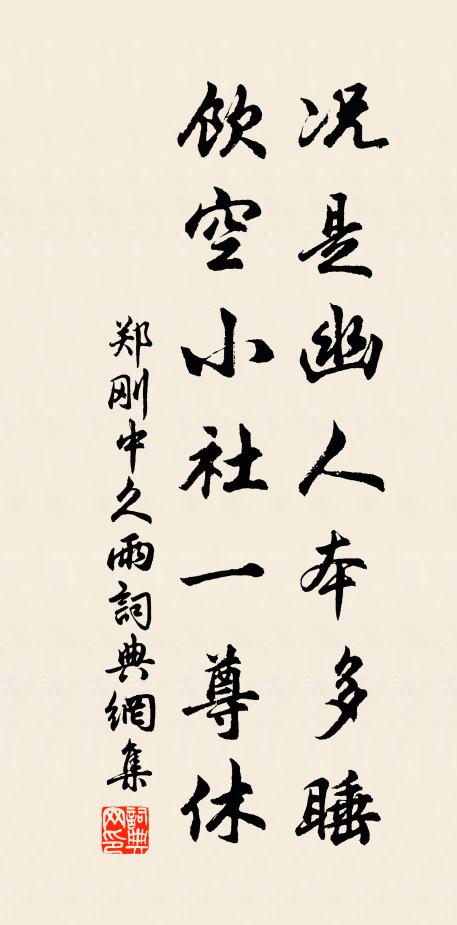 况是幽人本多睡
飲空小社一尊休
郑刚中久雨詞典網集
詞典网印